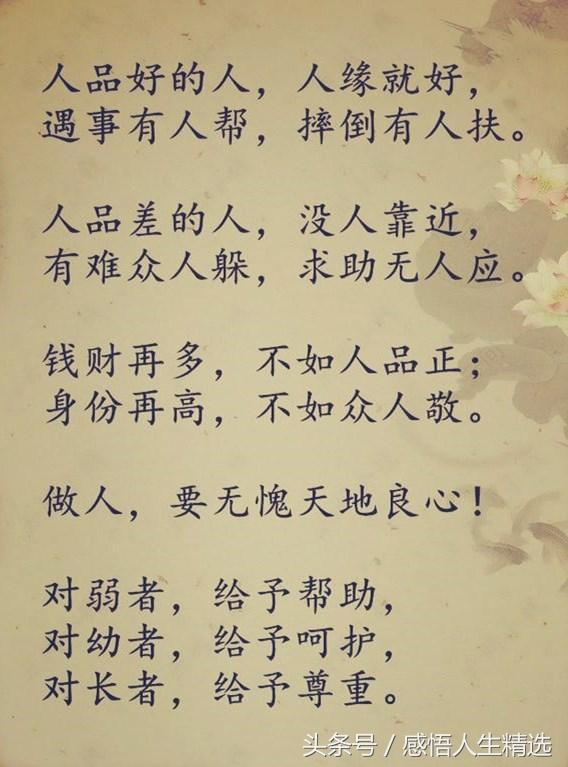 人品好的人，人缘就好，
遇事有人帮，摔倒有人扶。
人品差的人，没人靠近，
有难众人躲，求助无人应。
钱财再多，不如人品正；
身份再高，不如众人敬。
做人，要无愧天地良心！
对弱者，给予帮助，
对幼者，给予呵护，
对长者，给予尊重。
头条号 / 感悟人生精选